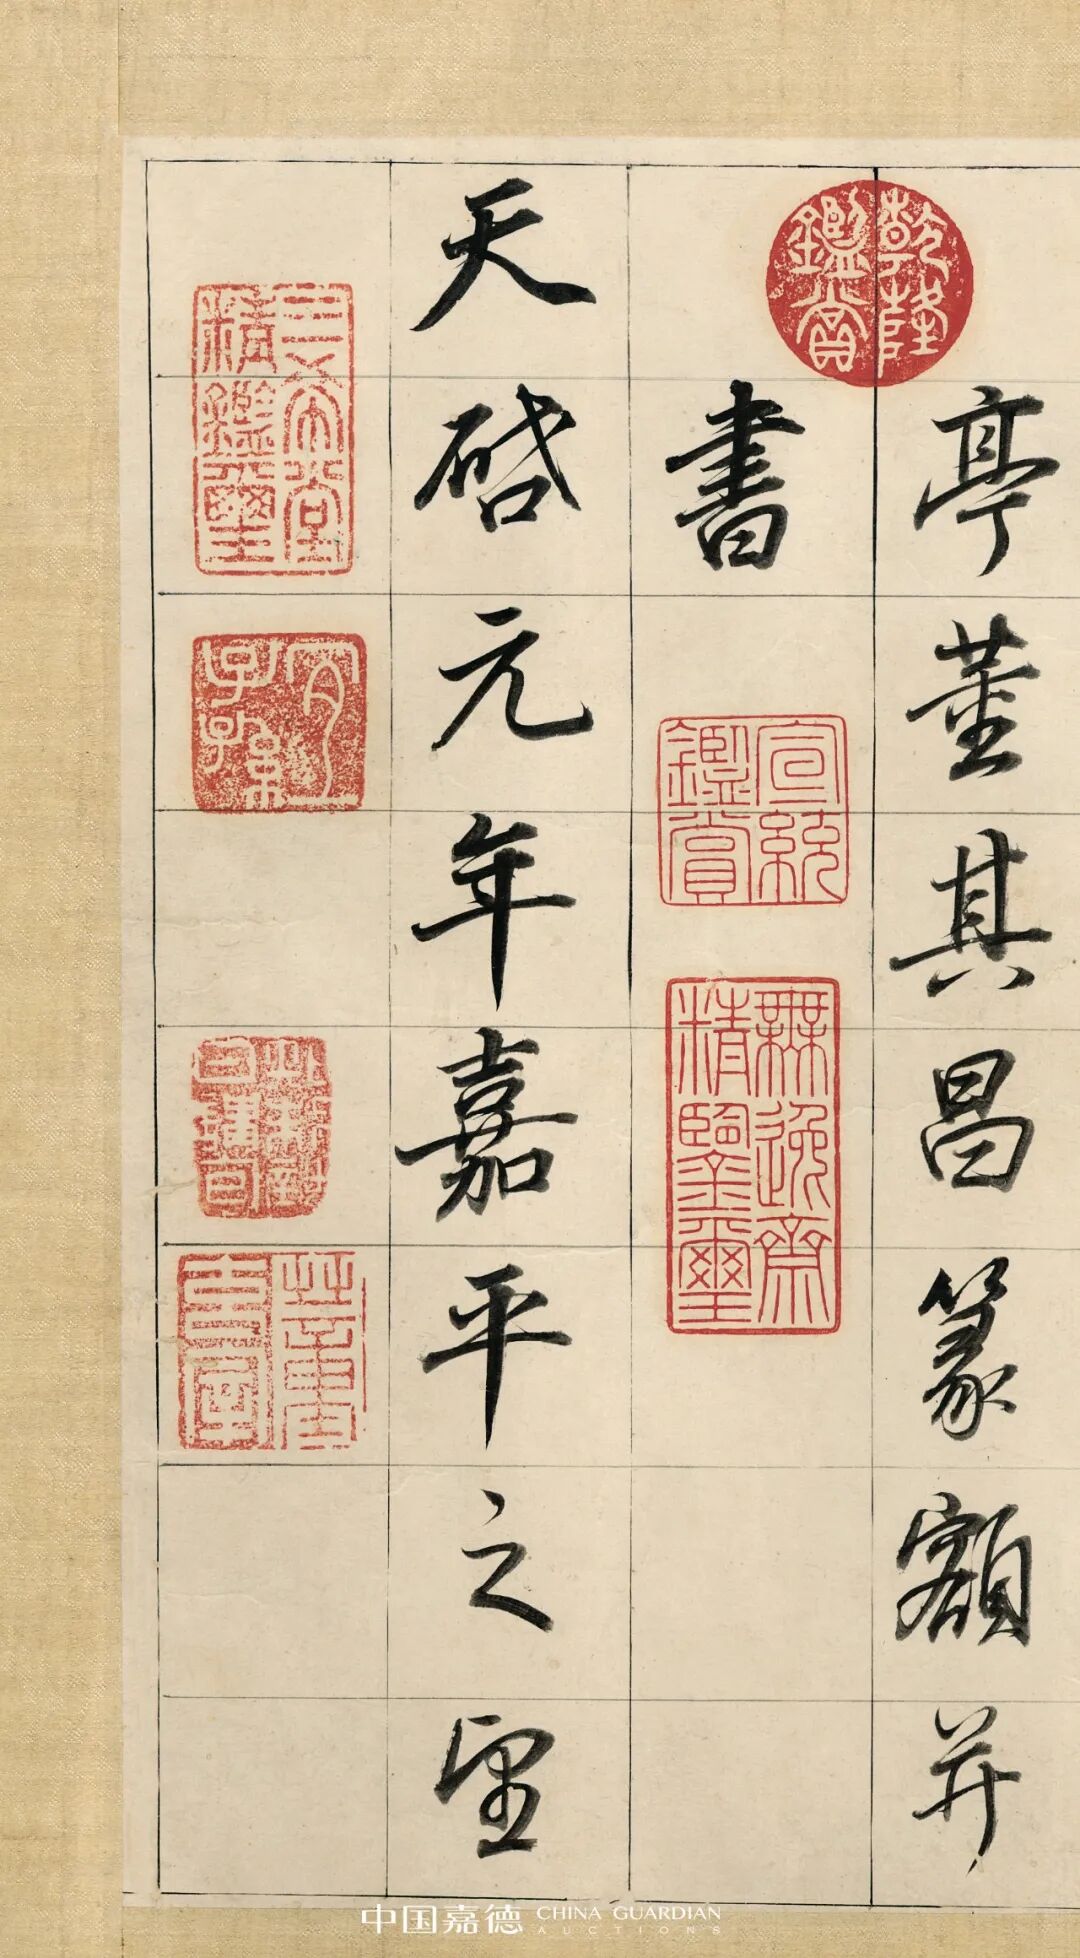 亭董其昌篆額并
書
天啓元年嘉平之望
乾隆鑑賞
宣統鑑賞
無逸齋精鑒璽
三希堂精鑑璽
宜子孫
中国嘉德 CHINA GUARDIAN
AUCTIONS